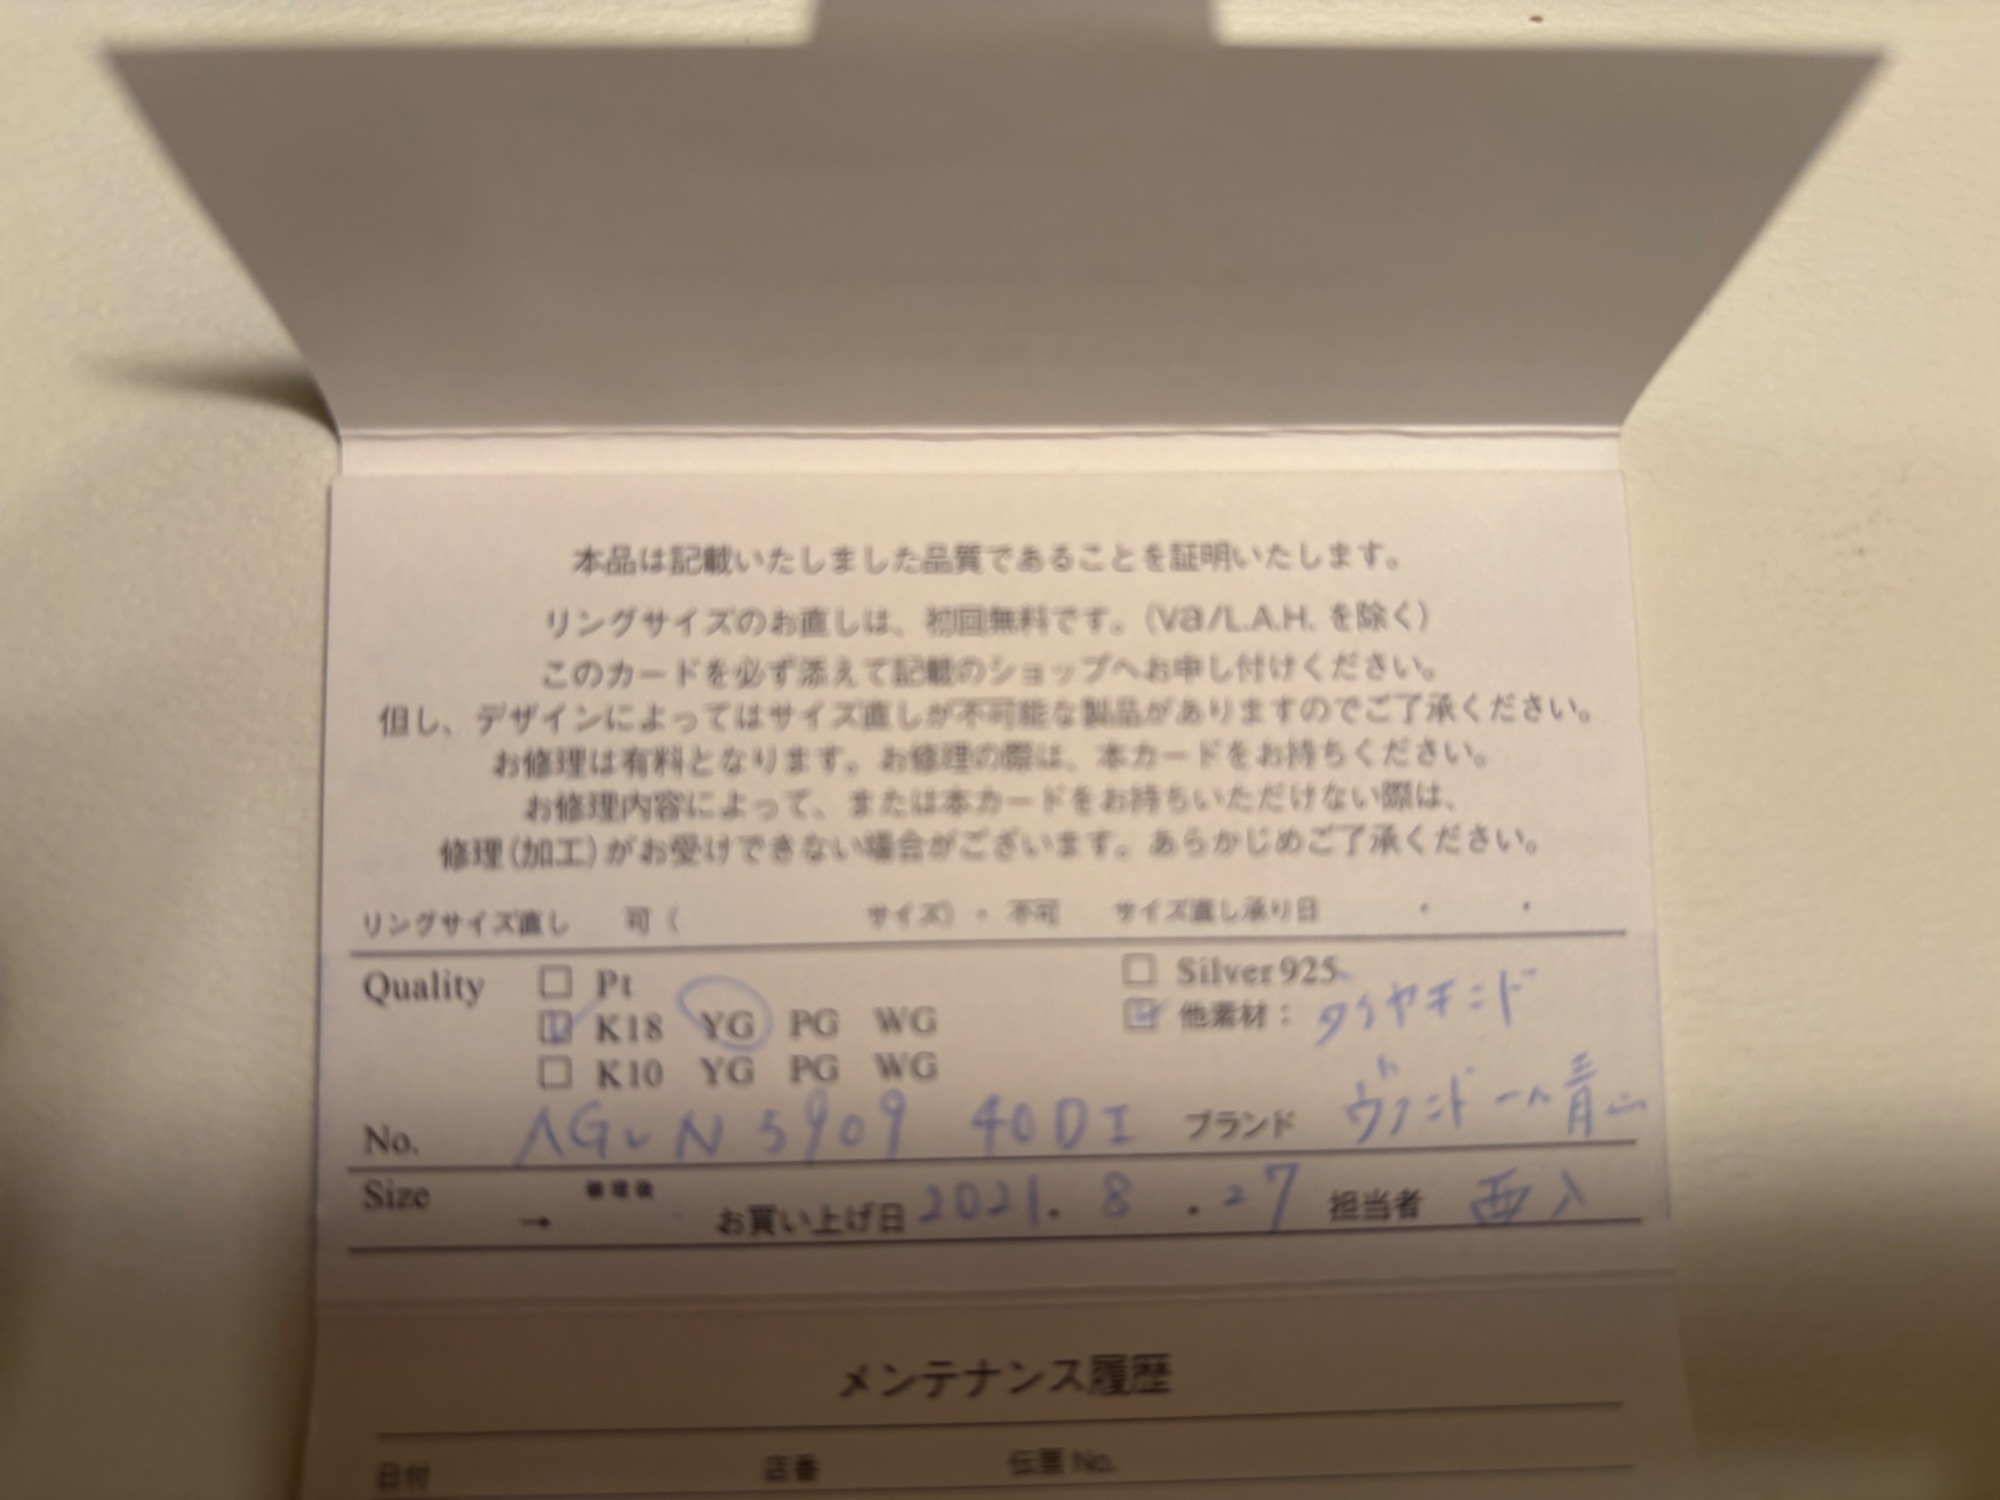 本品は記載いたしました品質であることを証明いたします。
リングサイズのお直しは、初回無料です。(va/L.A.H. を除く)
このカードを必ず添えて記載のショップへお申し付けください。
但し、デザインによってはサイズ直しが不可能な製品がありますのでご了承ください。
お修理は有料となります。お修理の際は、本カードをお持ちください。
お修理内容によって、または本カードをお持ちいただけない際は、
修理(加工)がお受けできない場合がございます。あらかじめご了承ください。
リングサイズ直し 可( サイズ)・不可 サイズ直し承り日 ・ ・
Quality □ Pt □ Silver925
□ K18 YG PG WG □ 他素材: ダイヤモンド
□ K10 YG PG WG
No. 5909 40DI ブランド ヴァンドーム青山
Size → 修理後 お買い上げ日 2021. 8 . 27 担当者
メンテナンス履歴
日付 店番 伝票No.